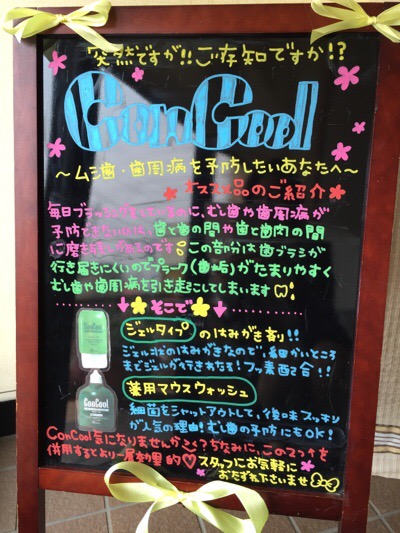 突然ですが!!ご存知ですか!?
ConCool
〜ムシ歯・歯周病を予防したいあなたへ〜
オススメ品のご紹介
毎日ブラッシングをしているのに、むし歯や歯周病が
予防できないのは、歯と歯の間や歯と歯肉の間
に磨き残しがあるのです この部分は歯ブラシが
行き届きにくいのでプラーク(歯垢)がたまりやすく
むし歯や歯周病を引き起こしてしまいます
そこで
ジェルタイプのはみがき剤!!
ジェル状のはみがきなので、細かいところ
までジェルが行きわたる!フッ素配合!!
薬用マウスウォッシュ
細菌をシャットアウトして、後味スッキリ
が人気の理由!むし歯の予防にもOK!
ConCool気になりませんか?ちなみに、この2つを
併用するとより一層効果的♡スタッフにお気軽に
おたずね下さいませ
ConCool
ConCool